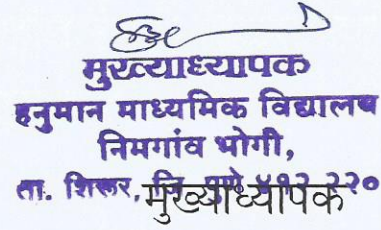 मुख्याध्यापक
हनुमान माध्यमिक विद्यालय
निमगांव भोगी,
ता. शिरूर, जि. पुणे ४१२ २२०
मुख्याध्यापक